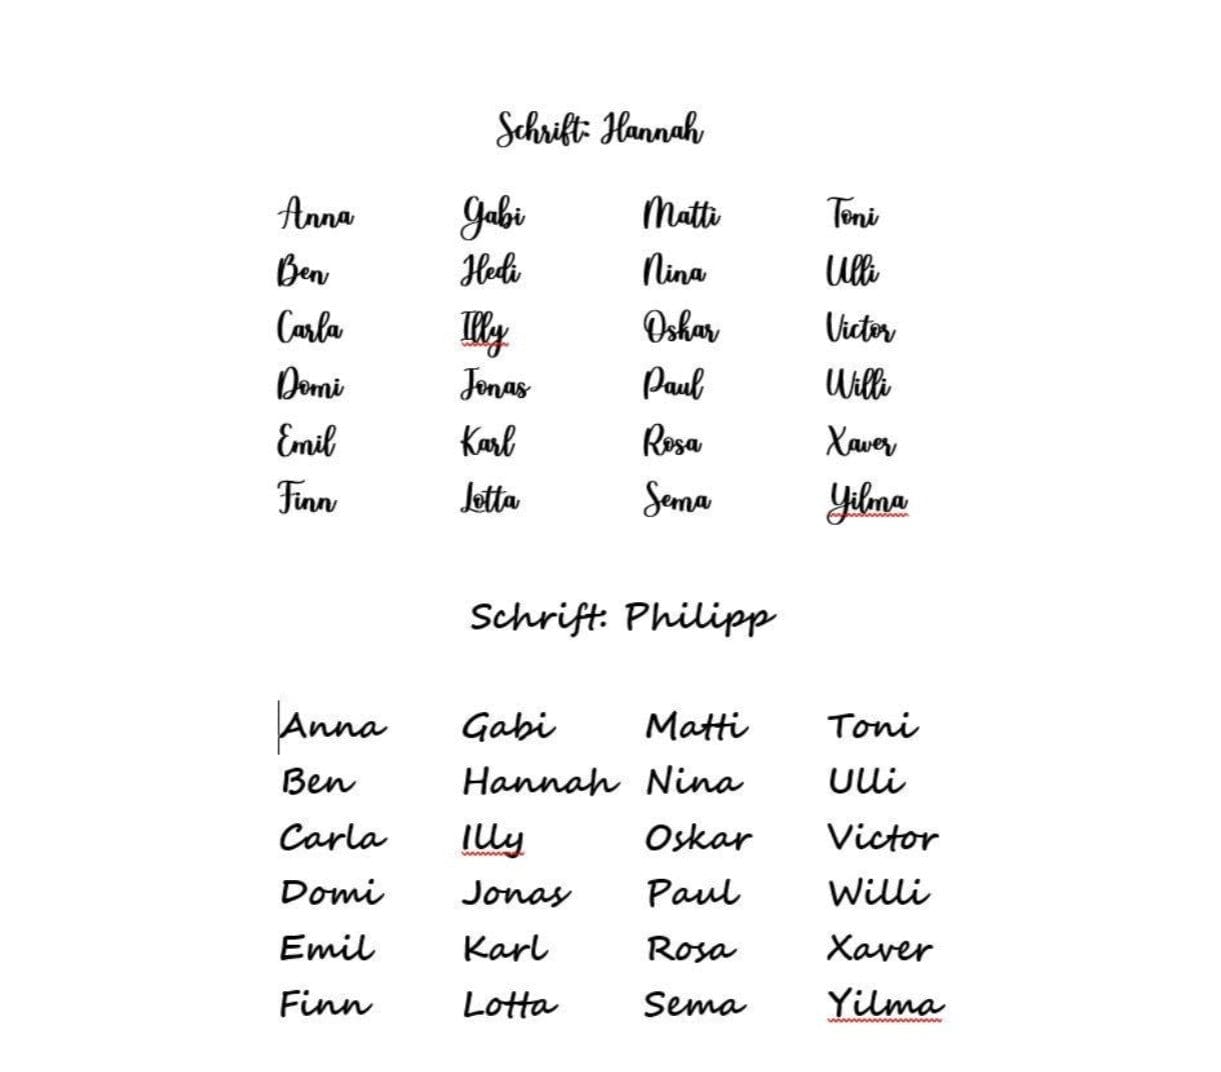 Schrift: Hannah
Anna Gabi Matti Toni
Ben Hedi Nina Ulli
Carla Illy Oskar Victor
Domi Jonas Paul Willi
Emil Karl Rosa Xaver
Finn Lotta Sema Yilma
Schrift: Philipp
Anna Gabi Matti Toni
Ben Hannah Nina Ulli
Carla Illy Oskar Victor
Domi Jonas Paul Willi
Emil Karl Rosa Xaver
Finn Lotta Sema Yilma